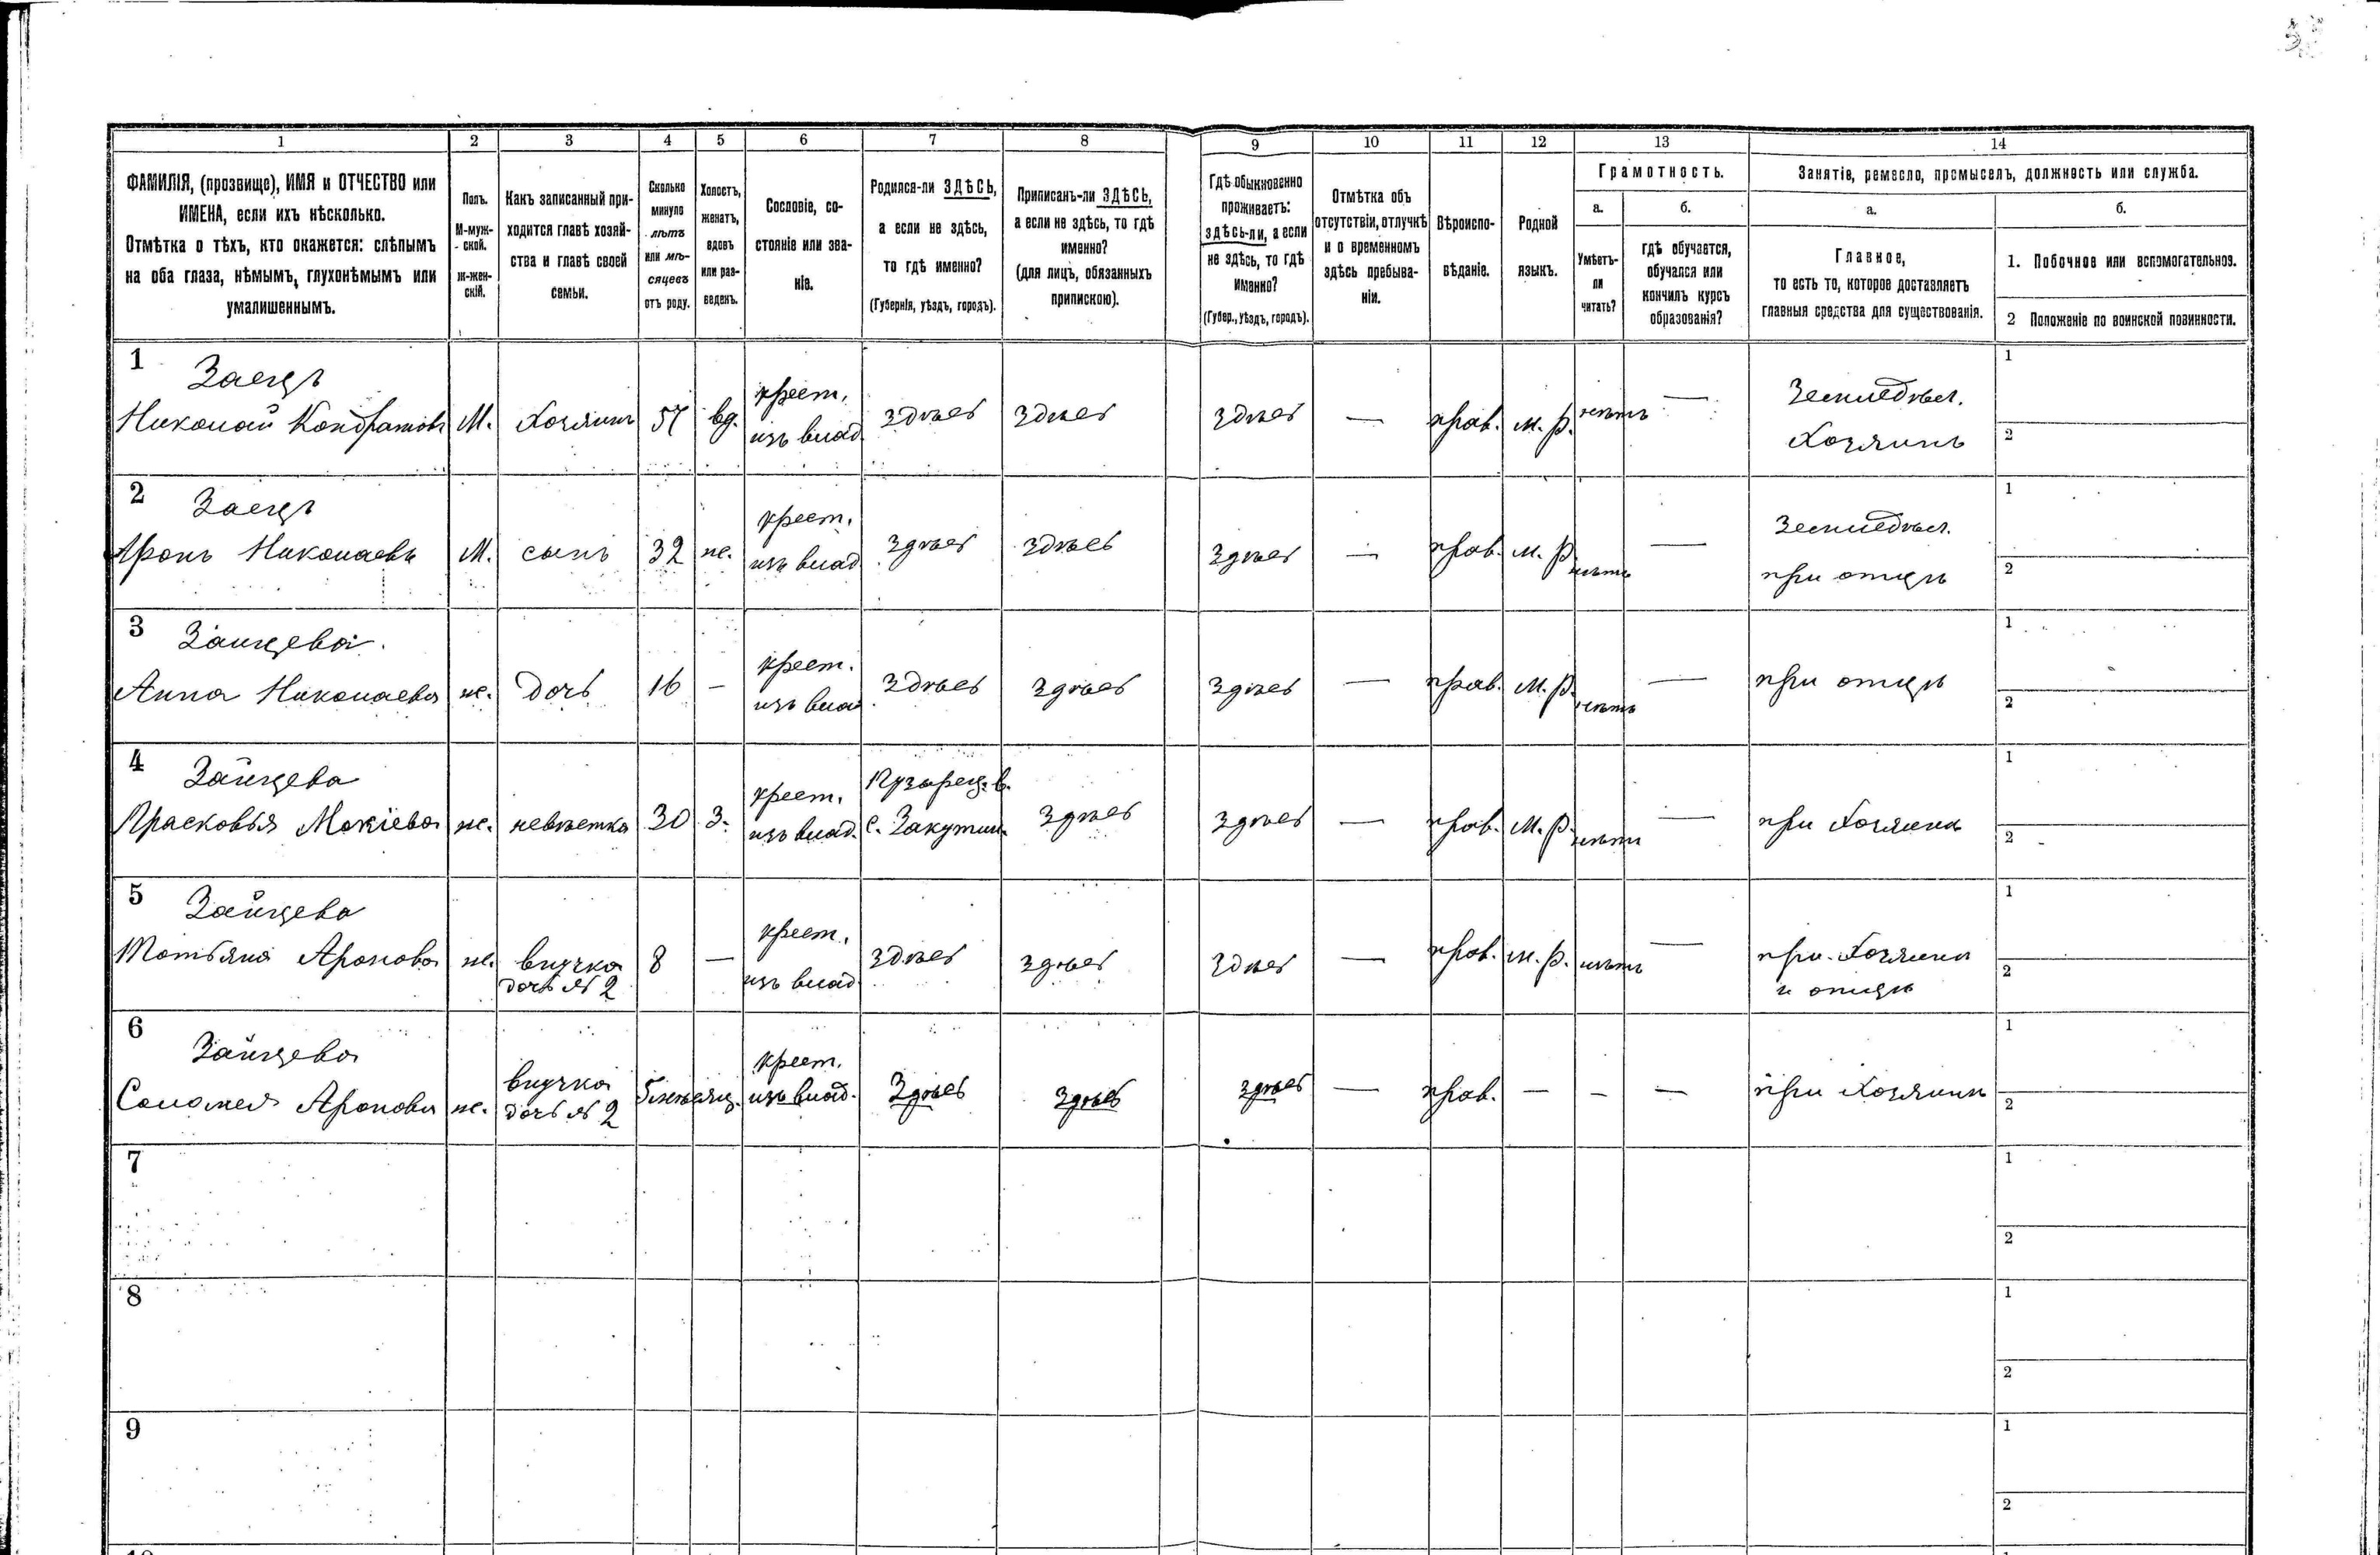 1 2 3 4 5 6 7 8 9 10 11 12 13 14
ФАМИЛІЯ, (прозвище), ИМЯ и ОТЧЕСТВО или
ИМЕНА, если ихъ нѣсколько.
Отмѣтка о тѣхъ, кто окажется: слѣпымъ
на оба глаза, нѣмымъ, глухонѣмымъ или
умалишеннымъ.
Полъ.
М-муж-
ской.
ж-жен-
скій.
Какъ записанный при-
ходится главѣ хозяй-
ства и главѣ своей
семьи.
Сколько
минуло
лѣтъ
или мѣ-
сяцевъ
отъ роду.
Холостъ,
женатъ,
вдовъ
или раз-
веденъ.
Сословіе, со-
стояніе или зва-
ніе.
Родился-ли ЗДѢСЬ,
а если не здѣсь,
то гдѣ именно?
(Губернія, уѣздъ, городъ).
Приписанъ-ли ЗДѢСЬ,
а если не здѣсь, то гдѣ
именно?
(для лицъ, обязанныхъ
припискою).
Гдѣ обыкновенно
проживаетъ:
здѣсь-ли, а если
не здѣсь, то гдѣ
именно?
(Губер., уѣздъ, городъ).
Отмѣтка объ
отсутствіи, отлучкѣ
и о временномъ
здѣсь пребыва-
ніи.
Вѣроиспо-
вѣданіе.
Родной
языкъ.
Грамотность.
а.
Умѣетъ-
ли
читать?
б.
гдѣ обучается,
обучался или
кончилъ курсъ
образованія?
Занятіе, ремесло, промыселъ, должность или служба.
а.
Главное,
то есть то, которое доставляетъ
главныя средства для существованія.
б.
1. Побочное или вспомогательное.
2 Положеніе по воинской повинности.
1 Заецъ
Николай Кондратовъ М. Хозяинъ 57 вд. крест. изъ влад. здѣсь здѣсь здѣсь — прав. м. р. нѣтъ — Земледѣл. Хозяинъ 1 2
2 Заецъ
Аронъ Николаевъ М. сынъ 32 же. крест. изъ влад. здѣсь здѣсь здѣсь — прав. м. р. нѣтъ — Земледѣл. при отцѣ 1 2
3 Заицева
Анна Николаева же. дочь 16 — крест. изъ влад. здѣсь здѣсь здѣсь — прав. м. р. нѣтъ — при отцѣ 1 2
4 Зайцева
Прасковья Мокіева же. невѣстка 30 З. крест. изъ влад. Пузырец. в. с. Закутин. здѣсь здѣсь — прав. м. р. нѣтъ — при Хозяинѣ 1 2
5 Зайцева
Татьяна Аронова же. внучка дочь № 2 8 — крест. изъ влад. здѣсь здѣсь здѣсь — прав. м. р. нѣтъ — при Хозяинѣ и отцѣ 1 2
6 Зайцева
Соломея Аронова же. внучка дочь № 2 5 мѣсяц. крест. изъ влад. Здѣсь Здѣсь здѣсь — прав. — — — при Хозяинѣ 1 2
7 1 2
8 1 2
9 1 2